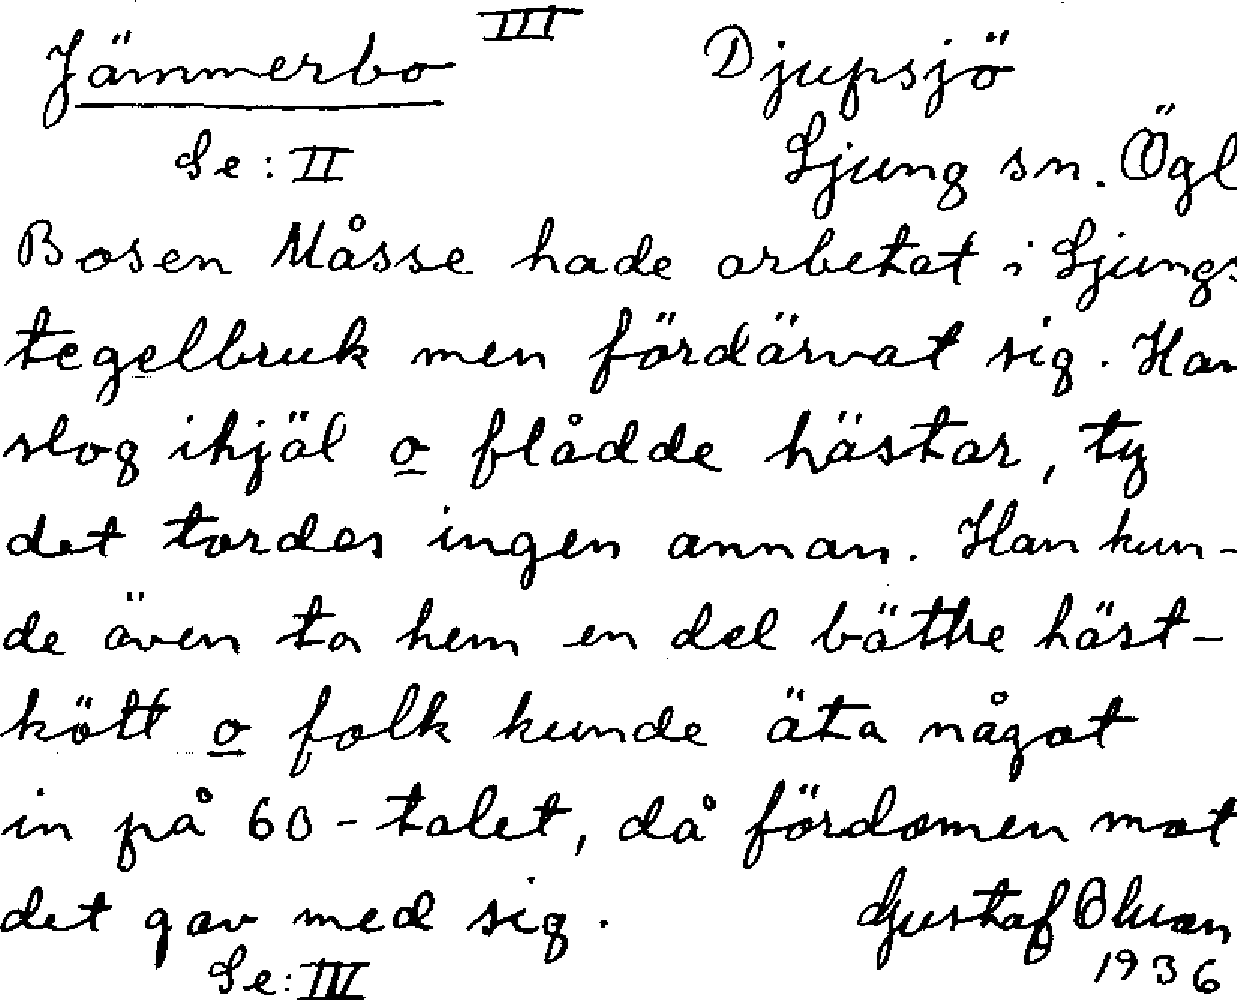 III
Jämmerbo Djupsjö
Se: II Ljung sn. Ögl
Bosen Måsse hade arbetat i Ljungs
tegelbruk men fördärvat sig. Han
slog ihjäl o flådde hästar, ty
det tordes ingen annan. Han kun-
de även ta hem en del bättre häst-
kött o folk kunde äta något
in på 60-talet, då fördomen mot
det gav med sig. Gustaf
Se: IV 1936